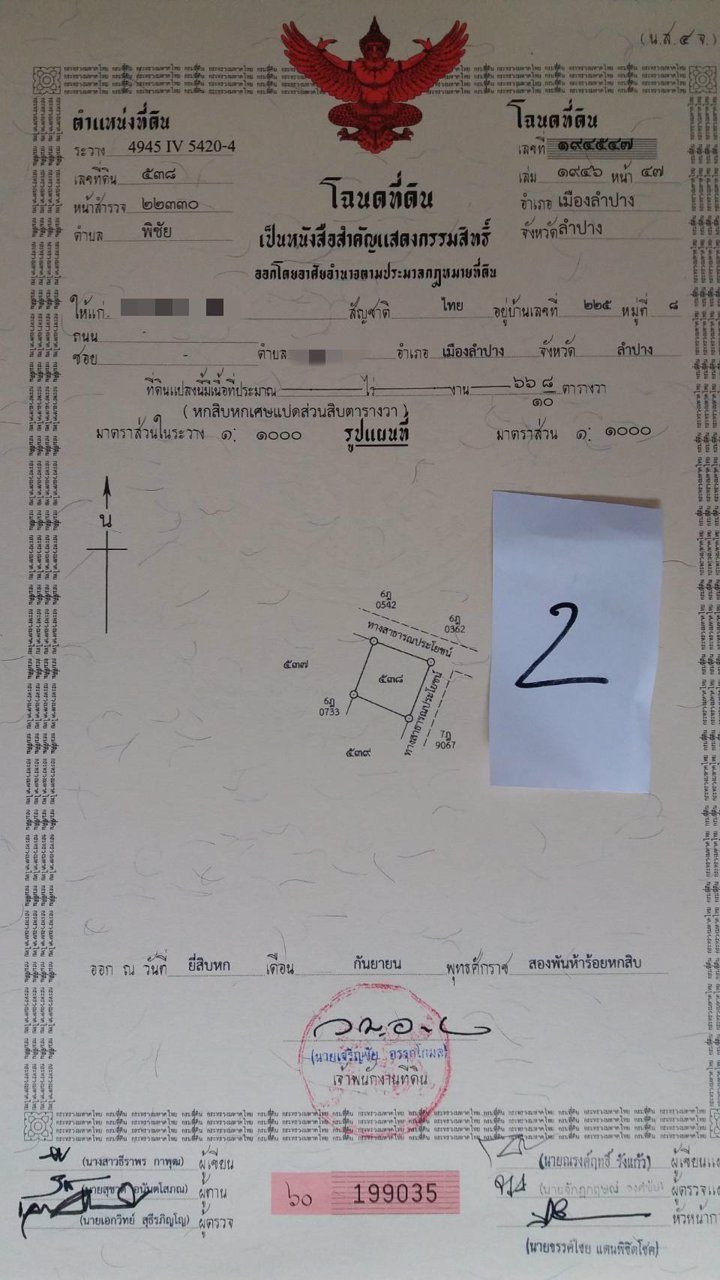 (น.ส.๔ จ.)
ตำแหน่งที่ดิน
ระวาง 4945 IV 5420-4
เลขที่ดิน ๕๓๘
หน้าสำรวจ ๒๒๓๓๐
ตำบล พิชัย
โฉนดที่ดิน
เลขที่ ๑๙๔๕๔๗
เล่ม ๑๙๔๖ หน้า ๔๗
อำเภอ เมืองลำปาง
จังหวัด ลำปาง
โฉนดที่ดิน
เป็นหนังสือสำคัญแสดงกรรมสิทธิ์
ออกโดยอาศัยอำนาจตามประมวลกฎหมายที่ดิน
ให้แก่ สัญชาติ ไทย อยู่บ้านเลขที่ ๒๒๕ หมู่ที่ ๘
ถนน -
ซอย - ตำบล อำเภอ เมืองลำปาง จังหวัด ลำปาง
ที่ดินแปลงนี้มีเนื้อที่ประมาณ ไร่ งาน ๖๖ ๘/๑๐ ตารางวา
( หกสิบหกเศษแปดส่วนสิบตารางวา )
มาตราส่วนในระวาง ๑: ๑๐๐๐ รูปแผนที่ มาตราส่วน ๑: ๑๐๐๐
น
6ฎ
0542
6ฎ
0362
ทางสาธารณประโยชน์
๕๓๗
๕๓๘
6ฎ
0733
ทางสาธารณประโยชน์
7ฎ
9067
๕๓๙
2
ออก ณ วันที่ ยี่สิบหก เดือน กันยายน พุทธศักราช สองพันห้าร้อยหกสิบ
(นายเจริญชัย อรรคโกมล)
เจ้าพนักงานที่ดิน
(นางสาวธีราพร กาพุฒ) ผู้เขียน
อนันตโสภณ) ผู้ทาน
(นายเอกวิทย์ สุธีรภิญโญ) ผู้ตรวจ
๖๐ 199035
(นายณรงค์ฤทธิ์ วังแก้ว) ผู้เขียนแ
ผู้ตรวจแ
หัวหน้าก